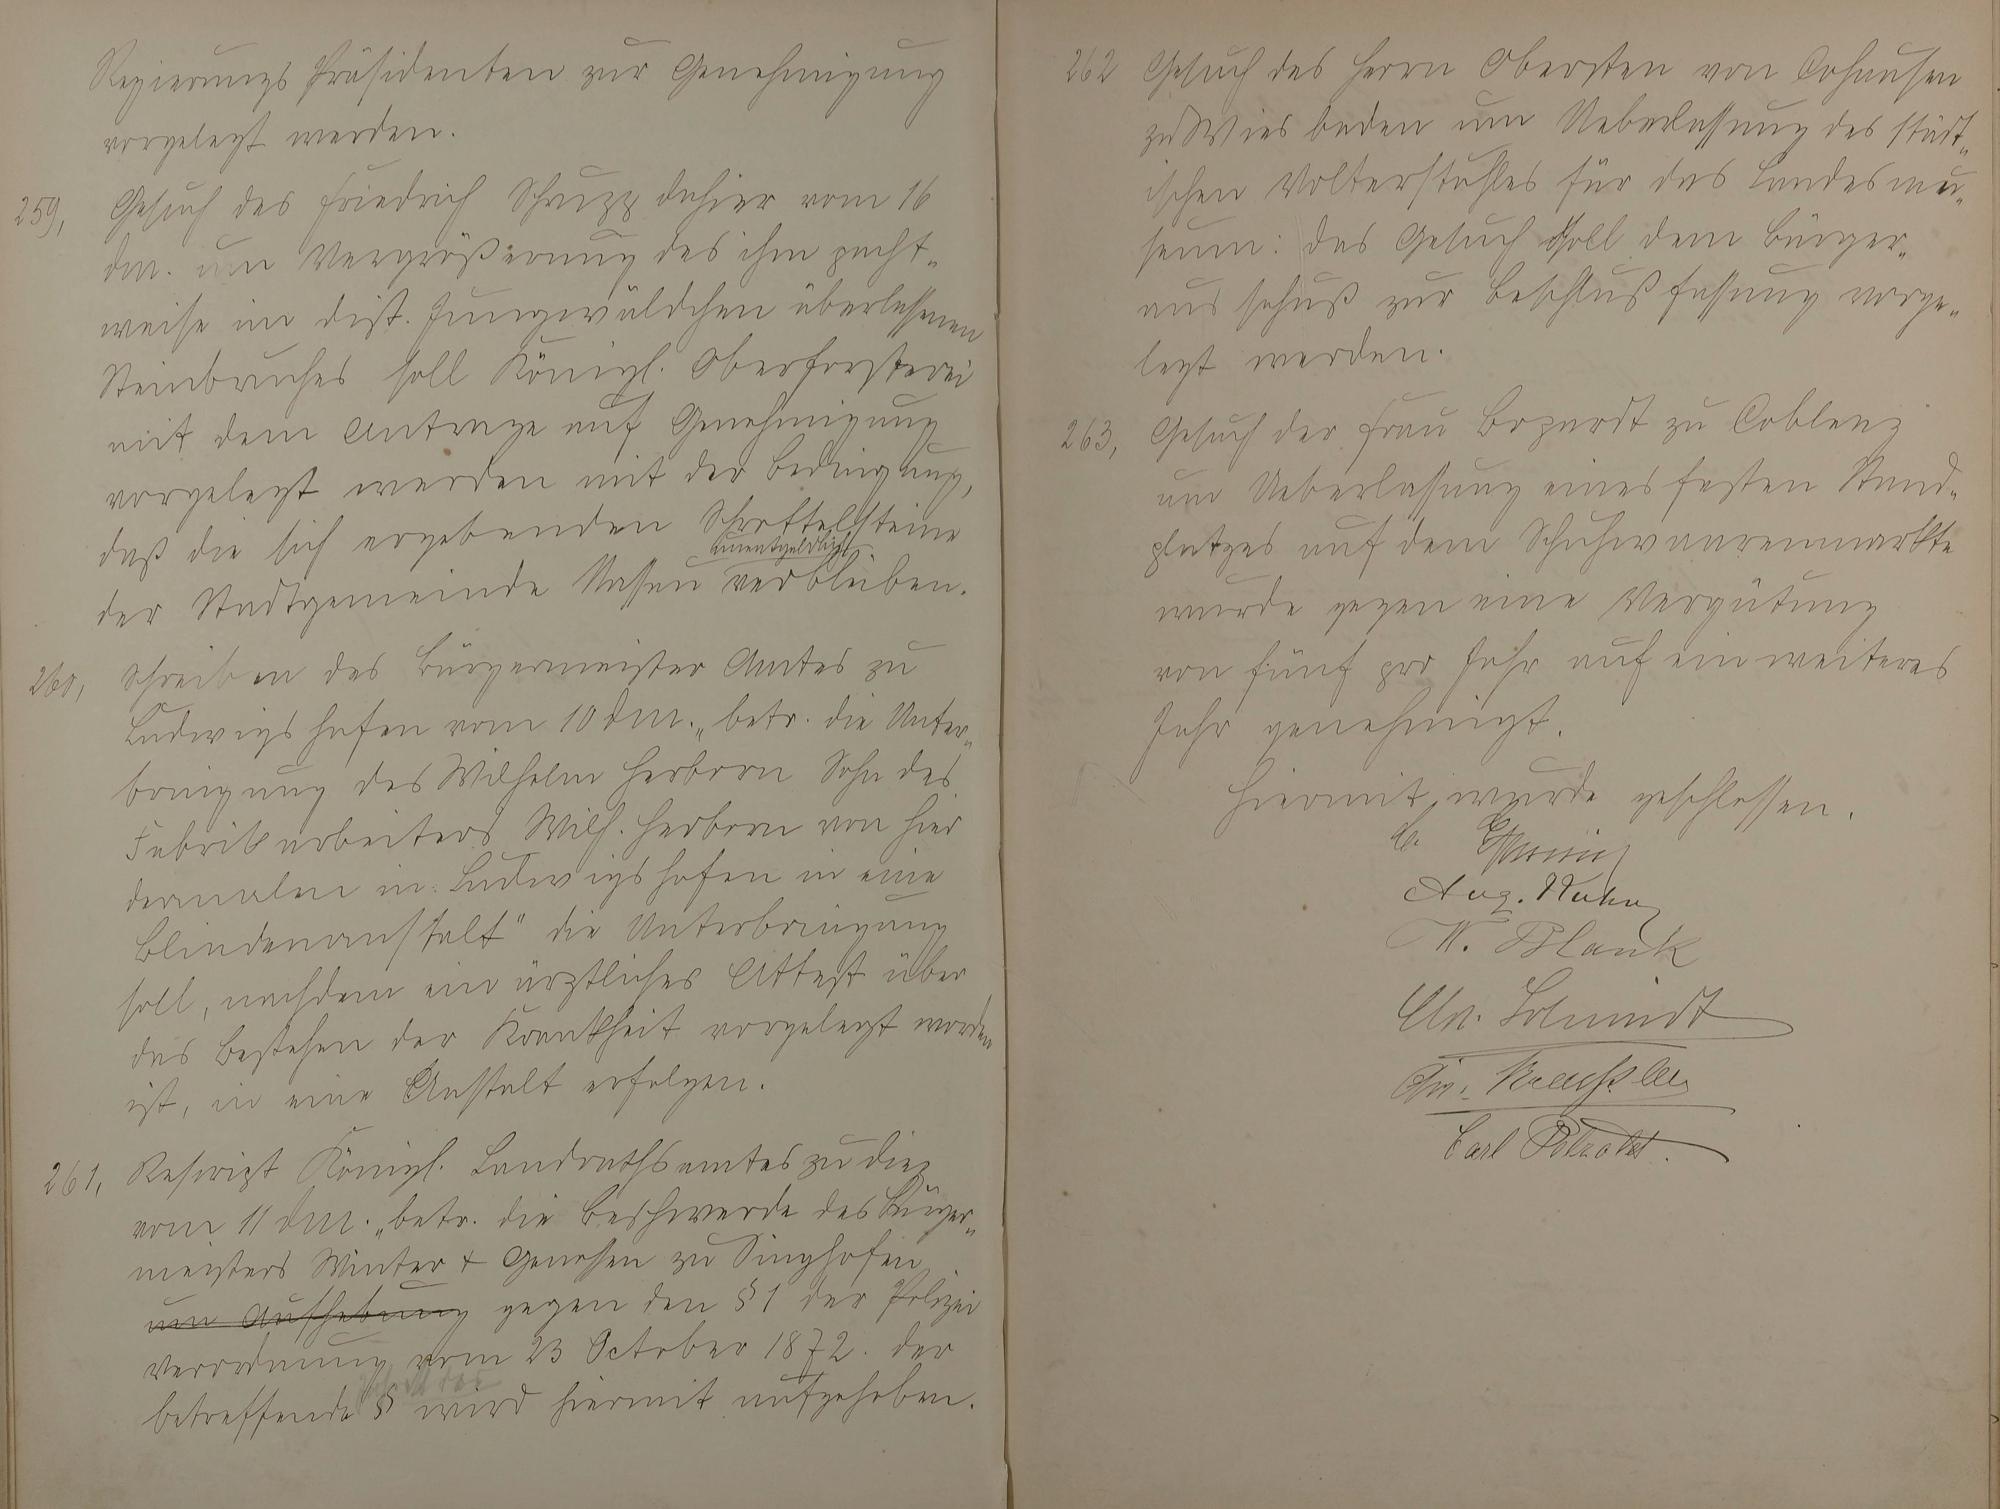 Regierungs Präsidenten zur Genehmigung
vorgelegt werden.
259, Gesuch des Friedrich Schrupp dahier vom 16
dM. um Vergrößerung des ihm pacht„
weise im Dist. Jungwäldchen überlassenen
Steinbruches soll Königl. Oberforsterei
mit dem Antrage auf Genehmigung
vorgelegt werden mit der Bedingung,
daß die sich ergebenden Schrottelsteine
unentgeldlich
der Stadtgemeinde Nassau verbleiben.
260, Schreiben des Bürgermeister Amtes zu
Ludwigshafen vom 10 dM. „betr. die Unter„
bringung des Wilhelm Herborn Sohn des
Fabrikarbeiters Wilh. Herborn von hier
dermalen in Ludwigshafen in eine
Blindenanstalt" die Unterbringung
soll, nachdem ein ärztliches Attest über
das Bestehen der Krankheit vorgelegt worden
ist, in eine Anstalt erfolgen.
261, Rescript Königl. Landrathsamtes zu Diez
vom 11 dM. „betr. die Beschwerde des Bürger„
meisters Winter & Genossen zu Singhofen
um Aufhebung gegen den § 1 der Polizei
Verordnung vom 23 October 1872. der
betreffende § wird hiermit aufgehoben.
262 Gesuch des Herrn Obersten von Cohausen
zu Wiesbaden um Ueberlassung des städt„
ischen Volterstuhles für das Landesmu„
seum: das Gesuch soll dem Bürger„
ausschuß zur Beschlußfassung vorge„
legt werden.
263, Gesuch der Frau Bogardt zu Coblenz
um Ueberlassung eines festen Stand„
platzes auf dem Schuhwaarenmarkte
wurde gegen eine Vergütung
von fünf pro Jahr auf ein weiteres
Jahr genehmigt.
Hiermit wurde geschlossen.
Aug. Kuhn
W. Blank
Chr. Schmidt
Carl